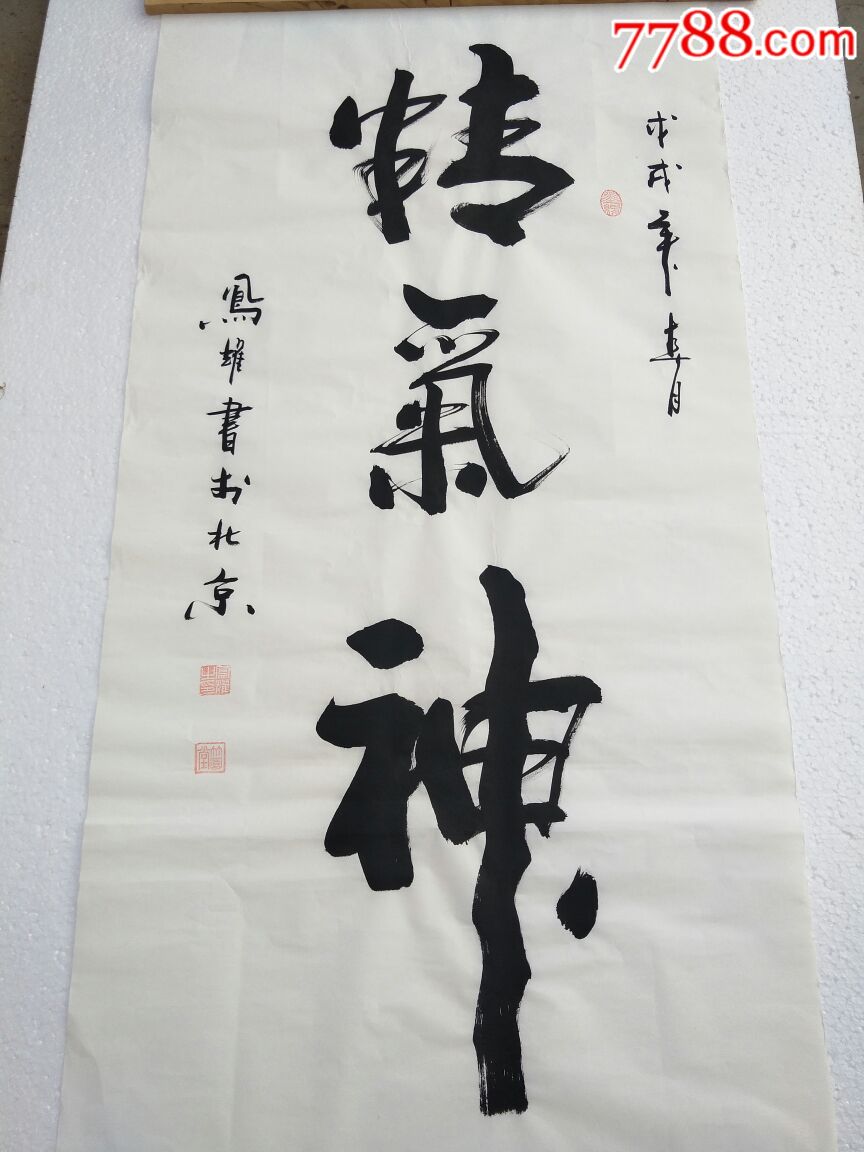 7788.com
戊戌年春月
精氣神
鳳雄書於北京